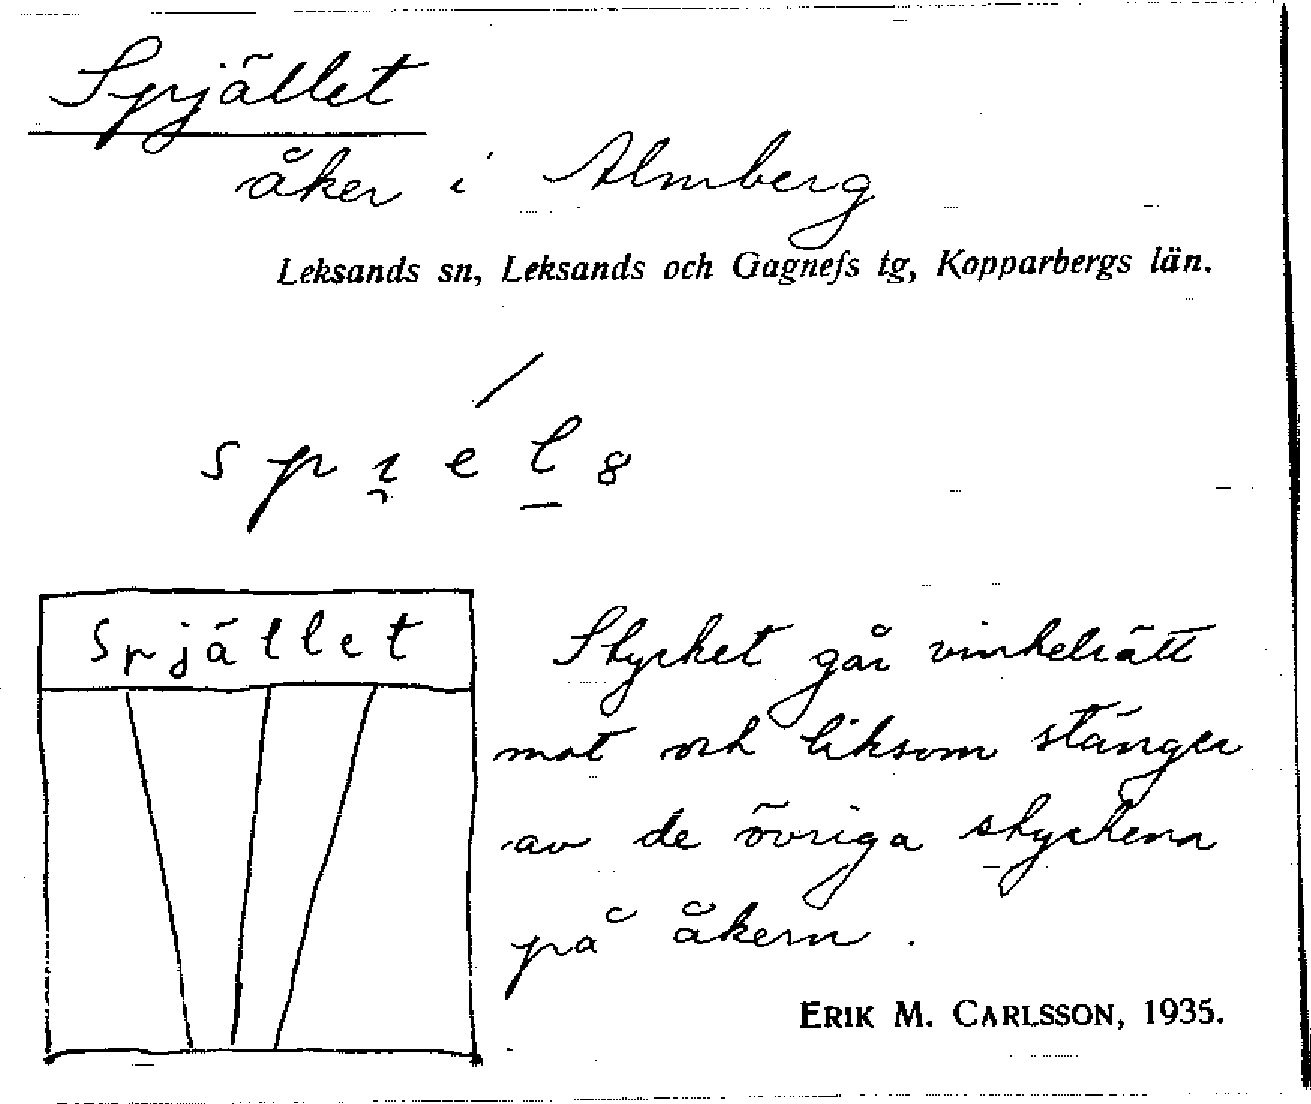 Spjället
åker i Almberg
Leksands sn, Leksands och Gagnefs tg, Kopparbergs län.
Spjället
Stycket går vinkelrätt
mot och liksom stänger
av de övriga styckena
på åkern.
ERIK M. CARLSSON, 1935.